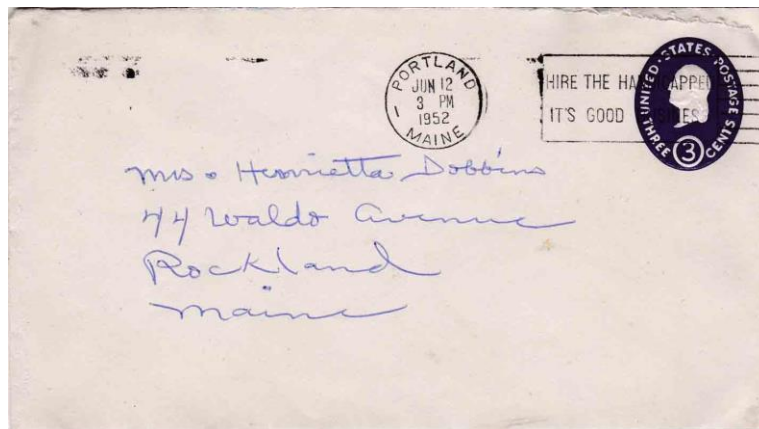 PORTLAND
JUN 12
3 PM
1952
1
MAINE
HIRE THE HANDICAPPED
IT'S GOOD BUSINESS
UNITED STATES POSTAGE
THREE 3 CENTS
Mrs. Henrietta Dobbins
44 Waldo Avenue
Rockland
Maine